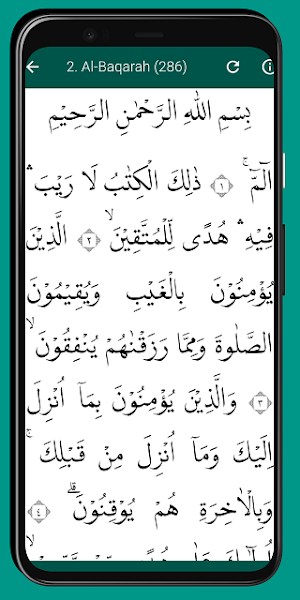 2. Al-Baqarah (286)
بِسْمِ اللّٰهِ الرَّحْمٰنِ الرَّحِيْمِ
الۤمّۤ ۚ ۝١ ذٰلِكَ الْكِتٰبُ لَا رَيْبَ ۛ
فِيْهِ ۛ هُدًى لِّلْمُتَّقِيْنَ ۙ ۝٢ الَّذِيْنَ
يُؤْمِنُوْنَ بِالْغَيْبِ وَيُقِيْمُوْنَ
الصَّلٰوةَ وَمِمَّا رَزَقْنٰهُمْ يُنْفِقُوْنَ ۙ
۝٣ وَالَّذِيْنَ يُؤْمِنُوْنَ بِمَآ اُنْزِلَ
اِلَيْكَ وَمَآ اُنْزِلَ مِنْ قَبْلِكَ ۚ
وَبِالْاٰخِرَةِ هُمْ يُوْقِنُوْنَ ۗ ۝٤